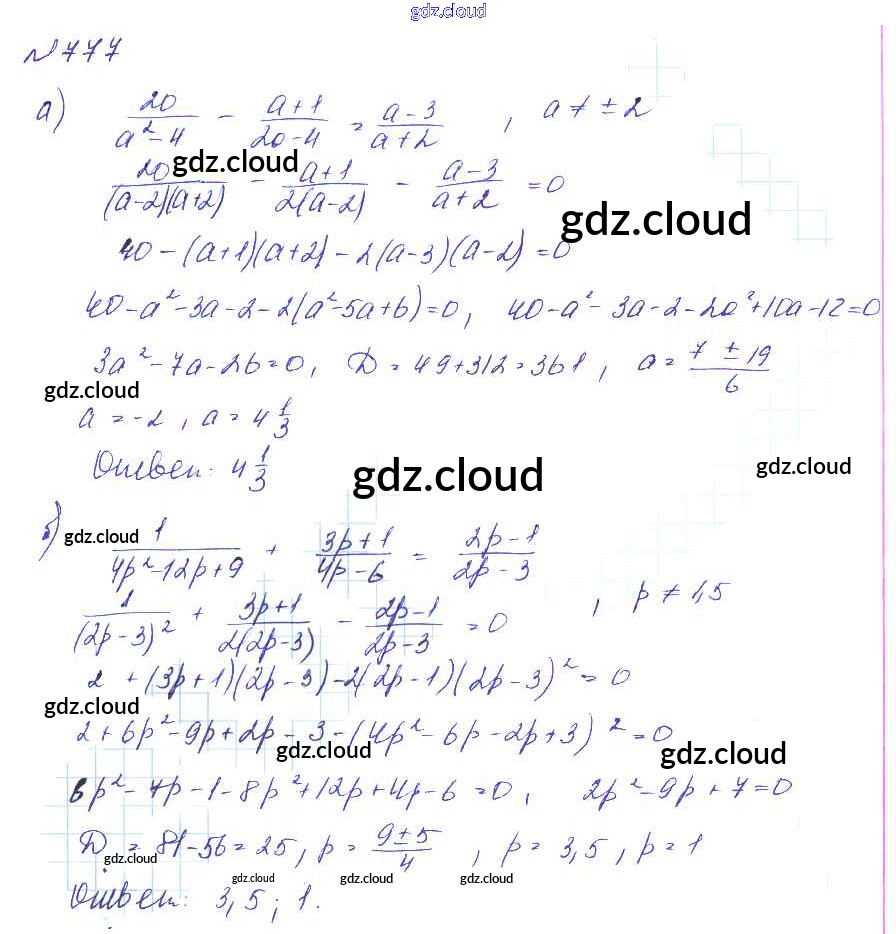 gdz.cloud
№ 777
а) 20/(a²-4) - (a+1)/(20-4) = (a-3)/(a+2) , a ≠ ± 2
gdz.cloud
20/((a-2)(a+2)) - (a+1)/(2(a-2)) - (a-3)/(a+2) = 0
gdz.cloud
40 - (a+1)(a+2) - 2(a-3)(a-2) = 0
40 - a² - 3a - 2 - 2(a² - 5a + 6) = 0, 40 - a² - 3a - 2 - 2a² + 10a - 12 = 0
3a² - 7a - 26 = 0, D = 49 + 312 = 361, a = (7 ± 19)/6
gdz.cloud
a = -2, a = 4 1/3
Ответ: 4 1/3
gdz.cloud
gdz.cloud
б) gdz.cloud
1/(4p²-12p+9) + (3p+1)/(4p-6) = (2p-1)/(2p-3)
1/(2p-3)² + (3p+1)/(2(2p-3)) - (2p-1)/(2p-3) = 0 , p ≠ 1,5
2 + (3p+1)(2p-3) - 2(2p-1)(2p-3)² = 0
gdz.cloud
2 + 6p² - 9p + 2p - 3 - (4p² - 6p - 2p + 3)² = 0
gdz.cloud gdz.cloud
6p² - 7p - 1 - 8p² + 12p + 4p - 6 = 0, 2p² - 9p + 7 = 0
D = 81 - 56 = 25, p = (9 ± 5)/4 , p = 3,5, p = 1
gdz.cloud
gdz.cloud gdz.cloud gdz.cloud
Ответ: 3,5; 1.